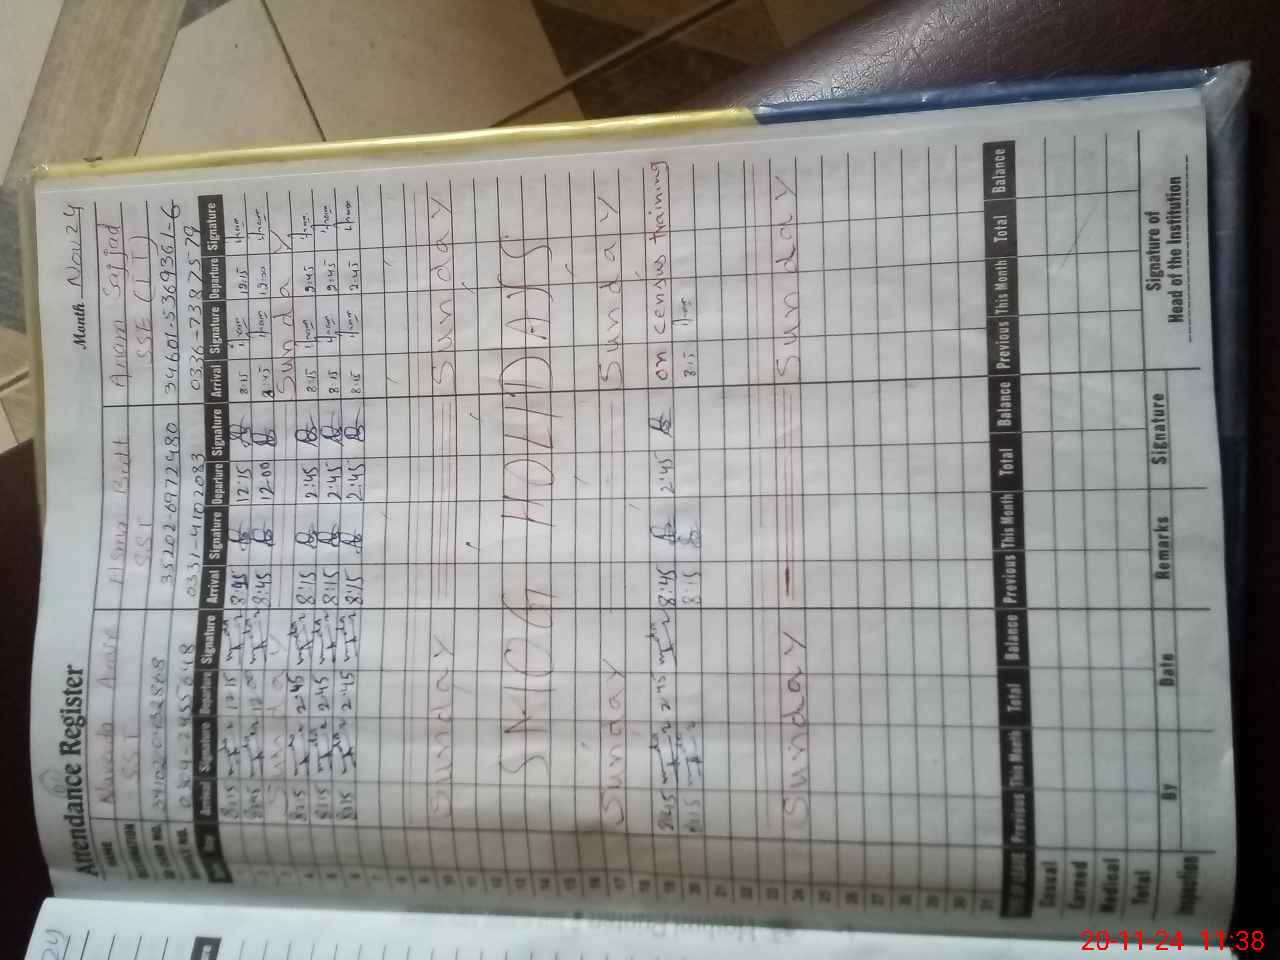 Attendance Register
Month Nov 24
NAME Naveeda Amir Asma Butt Anam Sajjad
DESIGNATION SST SST SSE (IT)
ID CARD NO. 35202-6972480 34601-5369361-6
MOBILE NO. 0331-4102083 0336-7387579
Date Arrival Signature Departure Signature Arrival Signature Departure Signature Arrival Signature Departure Signature
1 8:15 12:15 8:45 12:15 8:15 12:15
2 8:45 12:00 8:45 12:00 8:45 12:00
3 Sunday Sunday
4 8:15 2:45 8:15 2:45 8:15 2:45
5 8:15 2:45 8:15 2:45 8:15 2:45
6 8:15 2:45 8:15 2:45 8:15 2:45
7
8
9
10 Sunday Sunday
11
12
13 SMOG HOLIDAYS
14
15
16
17 Sunday Sunday
18
19 8:45 2:45 8:45 2:45 on census training
20 8:15 8:15 8:15
21
22
23
24 Sunday Sunday
25
26
27
28
29
30
31
Previous This Month Total Balance Previous This Month Total Balance Previous This Month Total Balance
Casual
Earned
Medical
Total
Inspection By Date Remarks Signature
Signature of
Head of the Institution
20-11-24 11:38